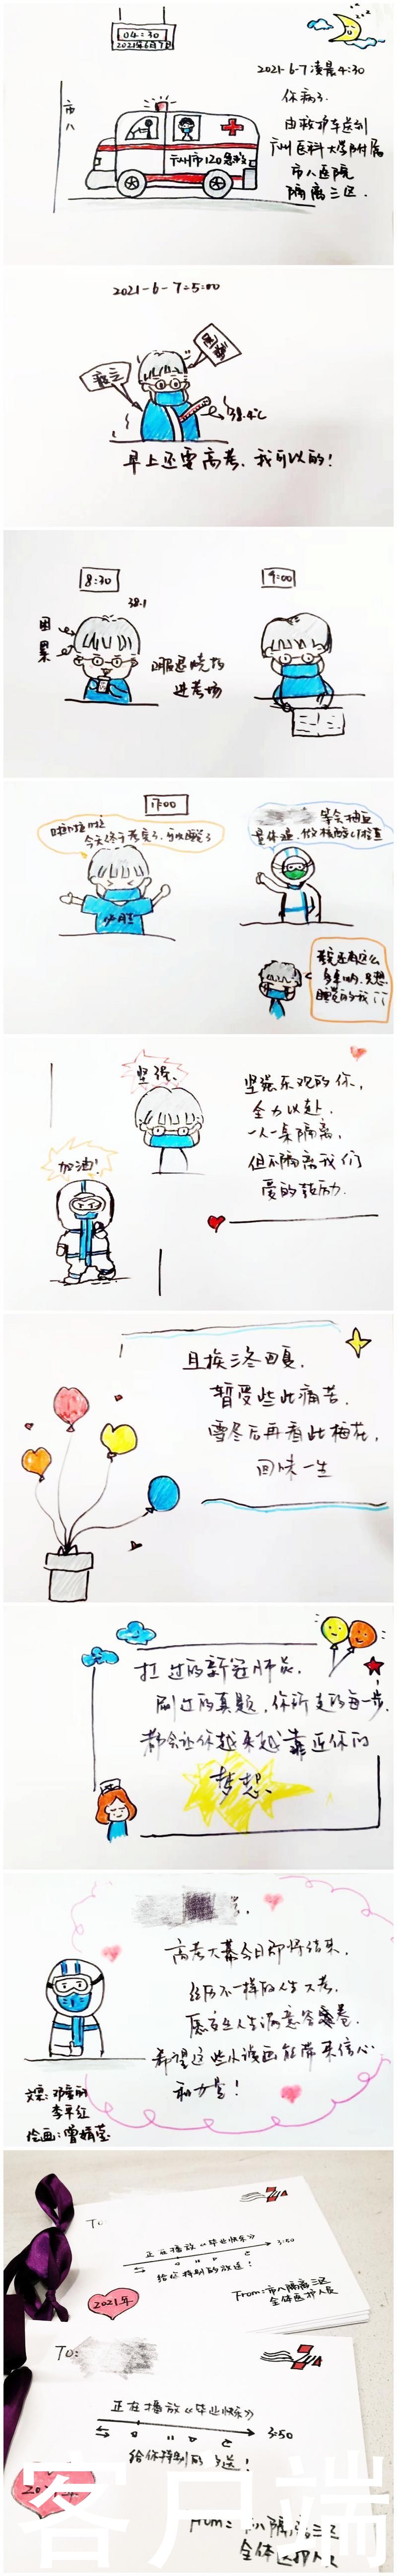 04:30
2021年6月7日
2021-6-7凌晨4:30
你病了.
由救护车送到
广州医科大学附属
市八医院
隔离三区.
市八
广州市120急救
2021-6-7 5:00
38.4℃
早上还要高考.我可以的!
8:30
38.1
困
累
服退烧药
进考场
9:00
17:00
啦啦啦
今天终于考完了,可以睡觉了
等会抽血
量体温,做核酸,CT检查
考完还有这么
多事啊,只想
睡觉的我
坚强.
加油!
坚强乐观的你,
全力以赴.
一人一桌隔离,
但不隔离我们
爱的鼓励.
且挨三冬四夏,
暂受些此痛苦,
雪尽后再看此梅花,
回味一生
扛过的新冠肺炎.
刷过的真题,你所走的每一步,
都会让你越来越靠近你的
梦想.
高考大幕今日即将结束,
经历不一样的人生大考,
愿交出人生满意答卷.
希望这些小漫画能带来信心
和力量!
文案:邓
李平红
绘画:曾婧莹
To
正在播放《毕业快乐》
3:50
给你特别的放送!
2021年
From:市八隔离三区
全体医护人员
To:
正在播放《毕业快乐》
3:50
给你特别的放送!
From: 市八隔离三区
全体医护人员
客户端